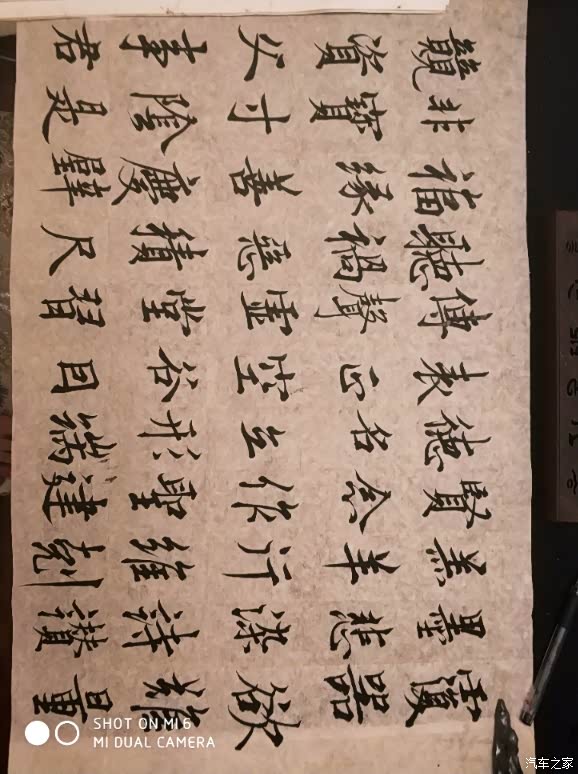 覆器欲難量
墨悲染詩讚
羔羊行維剋
賢念作聖建
德名立形端
表正空谷因
傳聲虛堂習
聽禍惡積尺
福緣善慶璧
非寶寸陰是
競資父事君
SHOT ON MI 6
MI DUAL CAMERA
汽车之家